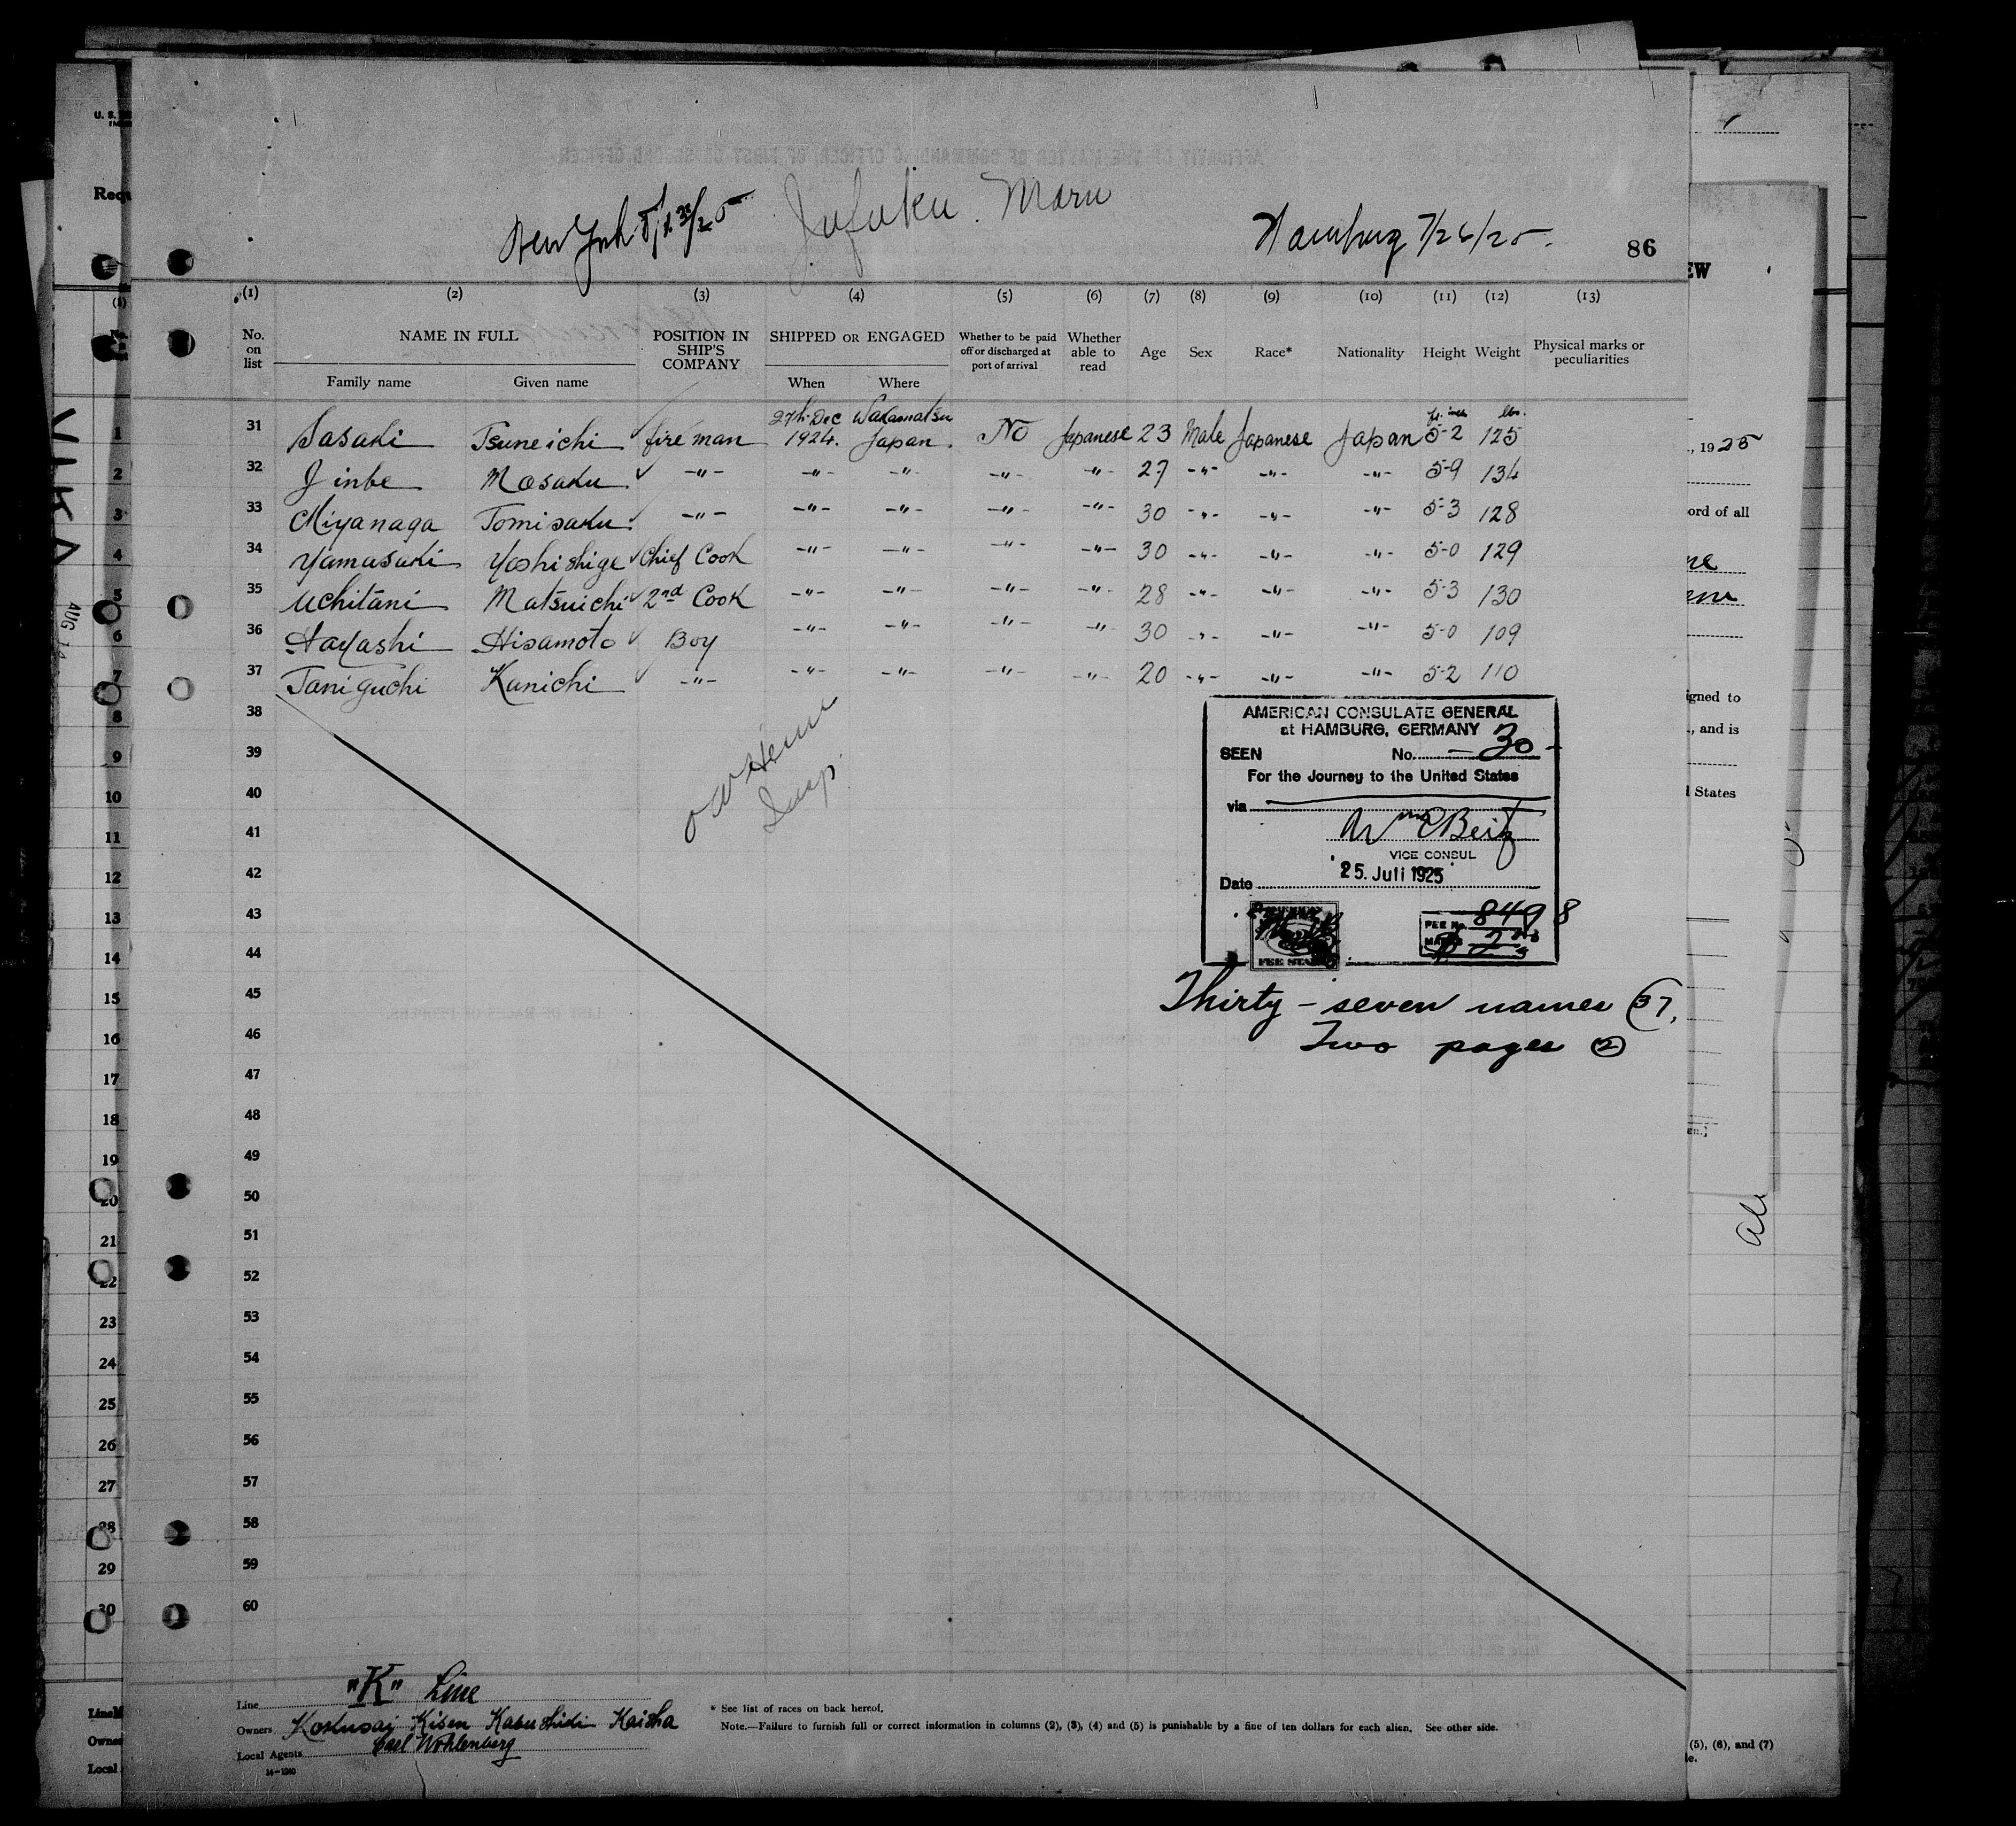 New York Jufuku Maru Hamburg 7/26/25. 86
(1) (2) (3) (4) (5) (6) (7) (8) (9) (10) (11) (12) (13)
No. on list NAME IN FULL POSITION IN SHIP'S COMPANY SHIPPED OR ENGAGED Whether to be paid off or discharged at port of arrival Whether able to read Age Sex Race* Nationality Height Weight Physical marks or peculiarities
Family name Given name When Where
31 Sasaki Tsuneichi fireman 27th Dec 1924. Wakamatsu Japan. No Japanese 23 Male Japanese Japan ft. inch 5-2 lbs. 125
32 Jinbe Masaku -"- -"- -"- -"- -"- 27 -"- -"- -"- 5-9 134
33 Miyanaga Tomisaku -"- -"- -"- -"- -"- 30 -"- -"- -"- 5-3 128
34 Yamasaki Yoshishige Chief Cook -"- -"- -"- -"- 30 -"- -"- -"- 5-0 129
35 Uchitani Matsuichi 2nd Cook -"- -"- -"- -"- 28 -"- -"- -"- 5-3 130
36 Hayashi Hisamoto Boy -"- -"- -"- -"- 30 -"- -"- -"- 5-0 109
37 Taniguchi Kanichi -"- -"- -"- -"- -"- 20 -"- -"- -"- 5-2 110
38
39
40
41
42
43
44
45
46
47
48
49
50
51
52
53
54
55
56
57
58
59
60
Insp.
AMERICAN CONSULATE GENERAL
at HAMBURG, GERMANY
SEEN No. -30-
For the Journey to the United States
via
Wm E Beitz
VICE CONSUL
Date 25. Juli 1925
FEE No. 8498
FEE STAMP
Thirty-seven names (37,
Two pages (2)
Line "K" Line
Owners Kokusai Kisen Kabushiki Kaisha
Local Agents Carl Wohlenberg
14-1240
* See list of races on back hereof.
Note.—Failure to furnish full or correct information in columns (2), (3), (4) and (5) is punishable by a fine of ten dollars for each alien. See other side.
U. S.
Requ
AUG 14
1
2
3
4
5
6
7
8
9
10
11
12
13
14
15
16
17
18
19
20
21
22
23
24
25
26
27
28
29
30
Line
Owner
Local
EW
, 1925
ord of all
igned to
, and is
l States
(5), (6), and (7)